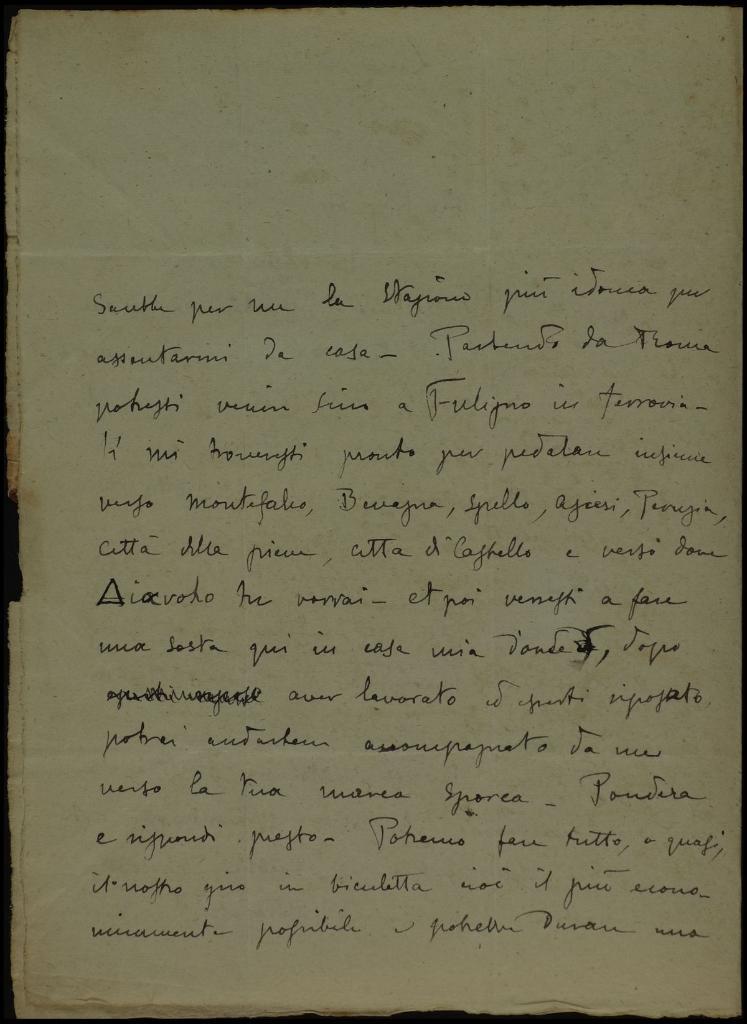 Sarebbe per me la stagione più idonea per
assentarmi da casa – Partendo da Roma
potresti venire sino a Fuligno in ferrovia –
lì mi troveresti pronto per pedalare insieme
verso Montefalco, Bevagna, Spello, Assisi, Perugia,
città della pieve, citta di Castello e verso dove
Diavolo tu vorrai – et poi verresti a fare
una sosta qui in casa mia donde, dopo
aver lavorato ed esserti riposato,
potrai andartene accompagnato da me
verso la tua marca sporca – Pondera
e rispondi presto – Potremo fare tutto, o quasi,
il nostro giro in bicicletta cioè il più econo-
micamente possibile e potrebbe durare una